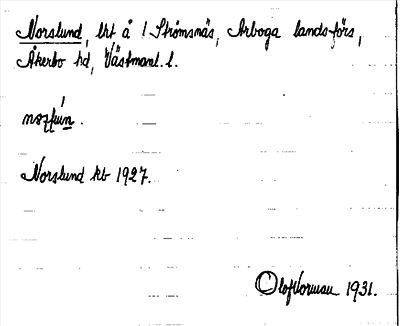 Norslund, lht å 1 Strömsnäs, Arboga landsförs,
Åkerbo hd, Västmanl. l.
Norslund kb 1927.
Olof Vorman 1931.